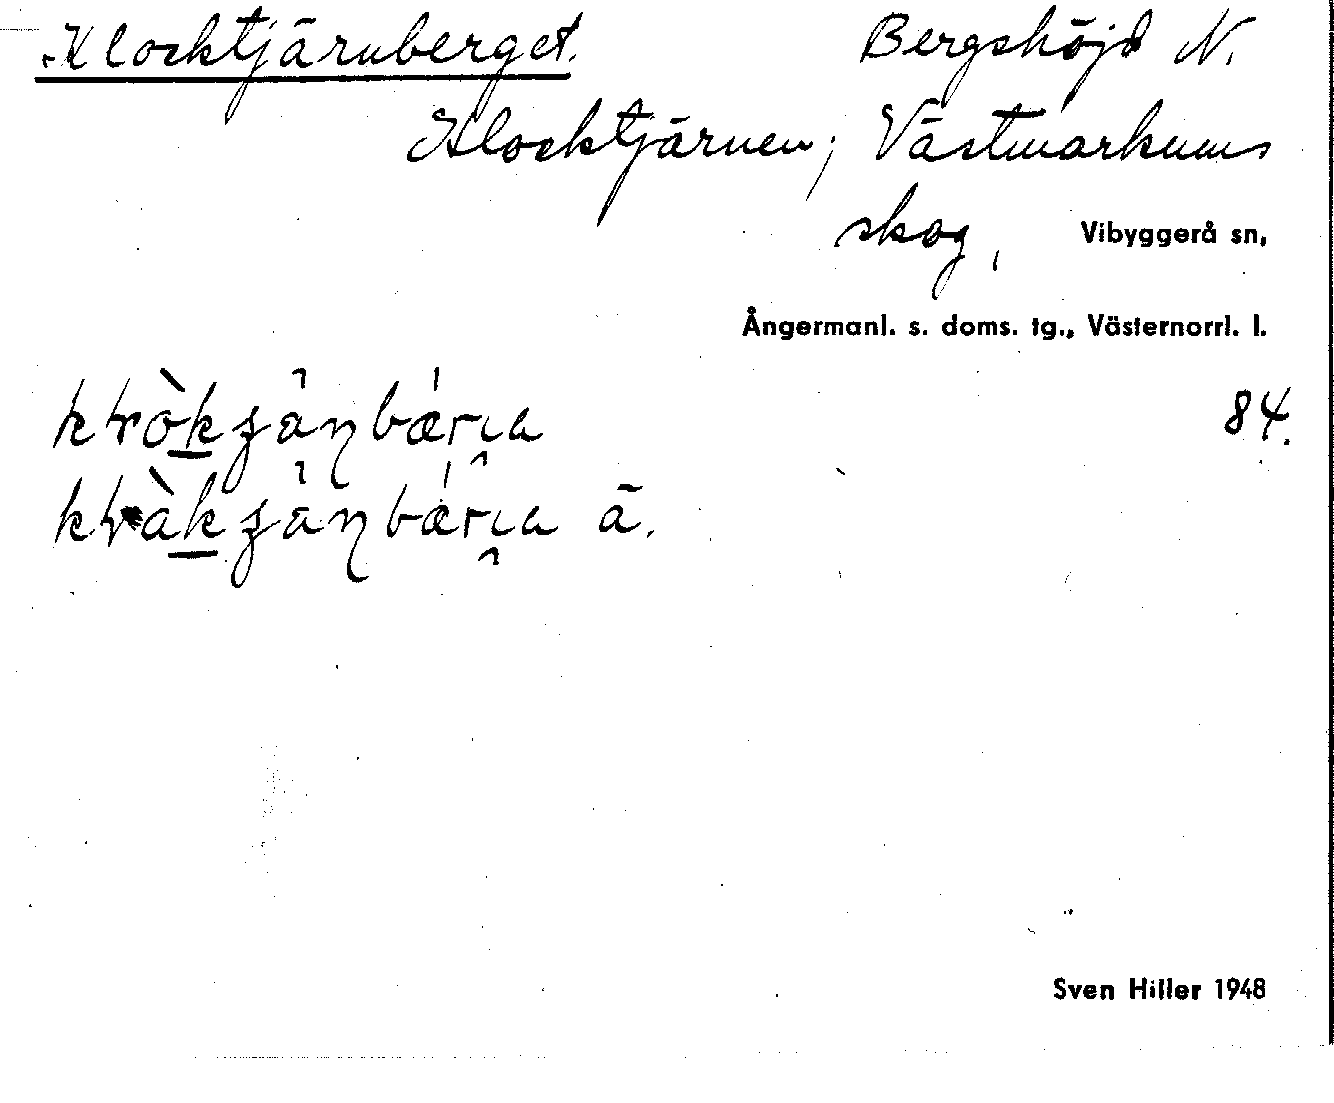 Klocktjärnberget. Bergshöjd N.
Klocktjärnen; Västmarkums
skog, Vibyggerå sn,
Ångermanl. s. doms. tg., Västernorrl. l.
84.
ä.
Sven Hiller 1948